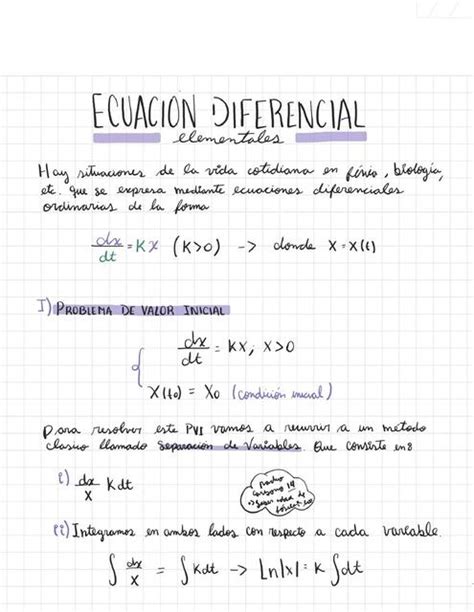 ECUACION DIFERENCIAL
elementales
Hay situaciones de la vida cotidiana en física, biología,
etc. que se expresa mediante ecuaciones diferenciales
ordinarias de la forma
dx/dt = Kx (K>0) -> donde X = X(t)
I) PROBLEMA DE VALOR INICIAL
dx/dt = KX; X>0
X(t0) = X0 (condición inicial)
para resolver este PVI vamos a recurrir a un metodo
clasico llamado Separación de Variables. Que consiste en:
i) dx/X Kdt
carbono 14
ii) Integramos en ambos lados con respecto a cada variable.
∫ dx/X = ∫ Kdt -> Ln|x| = K ∫ dt